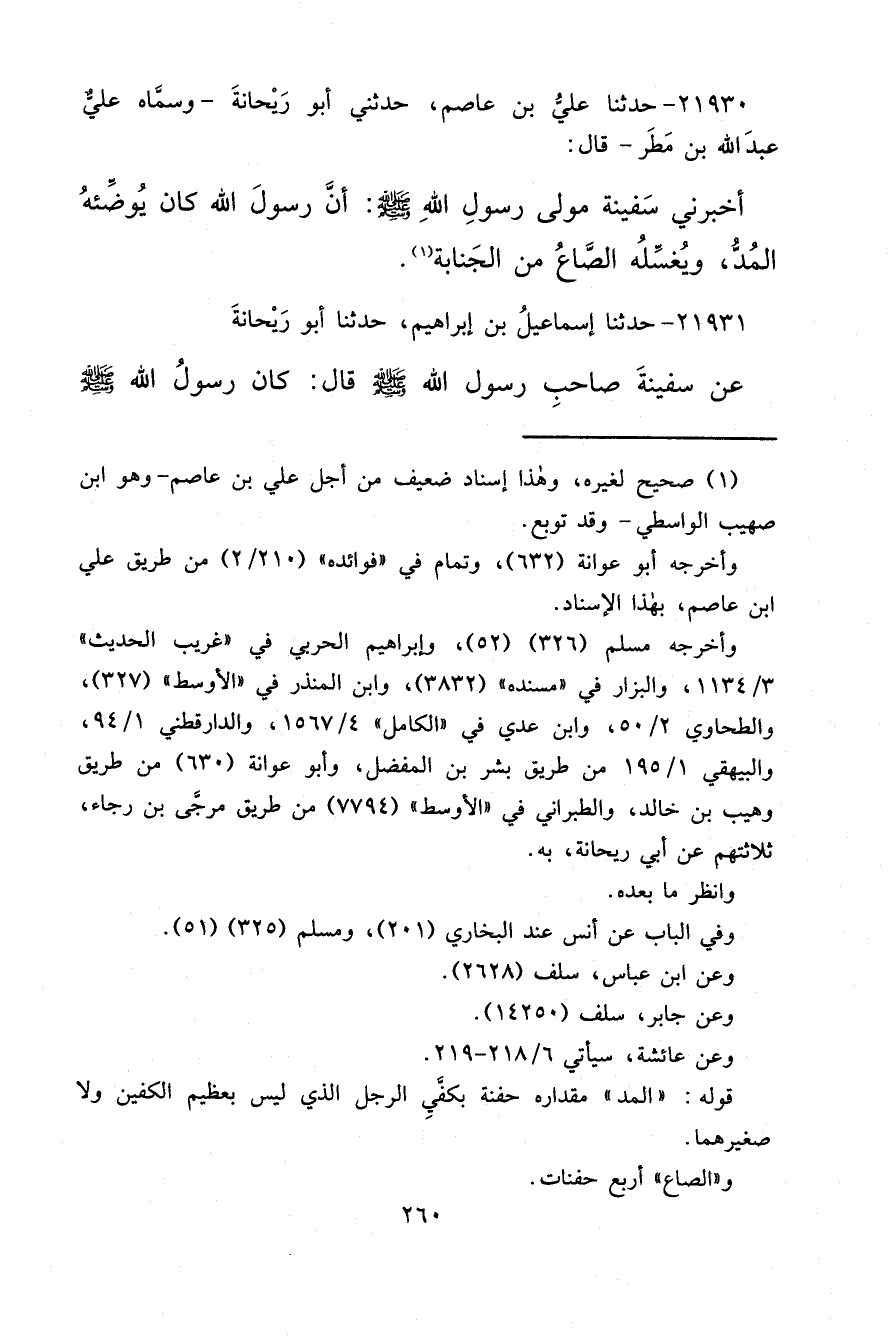 ٢١٩٣٠- حدثنا عليُّ بن عاصم، حدثني أبو رَيْحانةَ - وسمَّاه عليٌّ
عبدَالله بن مَطَر - قال:
أخبرني سَفينة مولى رسولِ اللهِ ﷺ: أنَّ رسولَ الله كان يُوضِّئهُ
المُدُّ، ويُغسِّلُه الصَّاعُ من الجَنابة(١).
٢١٩٣١- حدثنا إسماعيلُ بن إبراهيم، حدثنا أبو رَيْحانةَ
عن سفينةَ صاحبِ رسول الله ﷺ قال: كان رسولُ الله ﷺ
(١) صحيح لغيره، وهٰذا إسناد ضعيف من أجل علي بن عاصم- وهو ابن
صهيب الواسطي- وقد توبع.
وأخرجه أبو عوانة (٦٣٢)، وتمام في «فوائده» (٢/٢١٠) من طريق علي
ابن عاصم، بهٰذا الإسناد.
وأخرجه مسلم (٣٢٦) (٥٢)، وإبراهيم الحربي في «غريب الحديث»
٣/ ١١٣٤، والبزار في «مسنده» (٣٨٣٢)، وابن المنذر في «الأوسط» (٣٢٧)،
والطحاوي ٢/ ٥٠، وابن عدي في «الكامل» ٤/ ١٥٦٧، والدارقطني ١/ ٩٤،
والبيهقي ١/ ١٩٥ من طريق بشر بن المفضل، وأبو عوانة (٦٣٠) من طريق
وهيب بن خالد، والطبراني في «الأوسط» (٧٧٩٤) من طريق مرجَّى بن رجاء،
ثلاثتهم عن أبي ريحانة، به.
وانظر ما بعده.
وفي الباب عن أنس عند البخاري (٢٠١)، ومسلم (٣٢٥) (٥١).
وعن ابن عباس، سلف (٢٦٢٨).
وعن جابر، سلف (١٤٢٥٠).
وعن عائشة، سيأتي ٦/ ٢١٨-٢١٩.
قوله: «المد» مقداره حفنة بكفَّيِ الرجل الذي ليس بعظيم الكفين ولا
صغيرهما.
و«الصاع» أربع حفنات.
٢٦٠